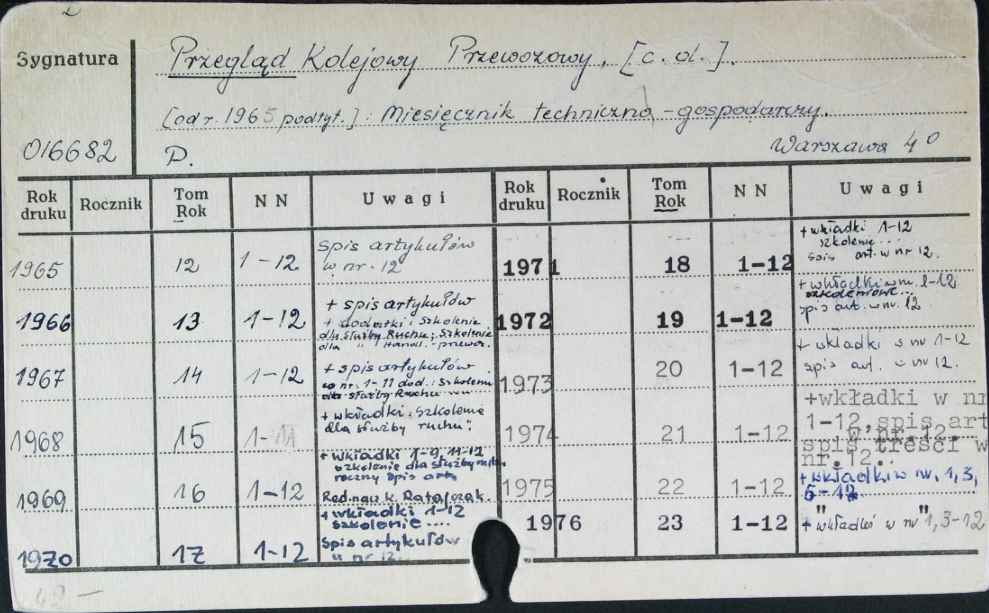 Sygnatura
Przegląd Kolejowy Przewozowy, [c. d.].
[od r. 1965 podtyt.]: Miesięcznik techniczno-gospodarczy.
016682 P. Warszawa 4°
Rok druku Rocznik Tom Rok NN Uwagi Rok druku Rocznik Tom Rok NN Uwagi
1965 12 1-12 spis artykułów
w nr. 12
1966 13 1-12 + spis artykułów
+ dodatki: Szkolenie
dla służby Ruchu; Szkolenie
dla " Handl.-przew.
1967 14 1-12 + spis artykułów
w nr. 1-11 dod.: Szkolenie
dla służby Ruchu
1968 15 1-11 + wkładki: Szkolenie
dla służby ruchu;
1969 16 1-12 + wkładki 1-9, 11-12
szkolenie dla służby ruchu
roczny spis art.
Red. nauk. Ratajczak
1970 17 1-12 + wkładki 1-12
szkolenie ....
Spis artykułów
w nr 12.
1971 18 1-12 + wkładki 1-12
szkolenie ...
spis art. w nr 12.
1972 19 1-12 + wkładki w nr. 1-12
szkoleniowe...
spis art. w nr. 12
1973 20 1-12 + wkładki w nr 1-12
spis art. w nr 12.
1974 21 1-12 +wkładki w nr
1-12, spis art
w nr. 12.
spis treści w
nr.12..
1975 22 1-12 + wkładki w nr. 1, 3,
5-12
1976 23 1-12 + "wkładki w nr" 1, 3-12
48 —